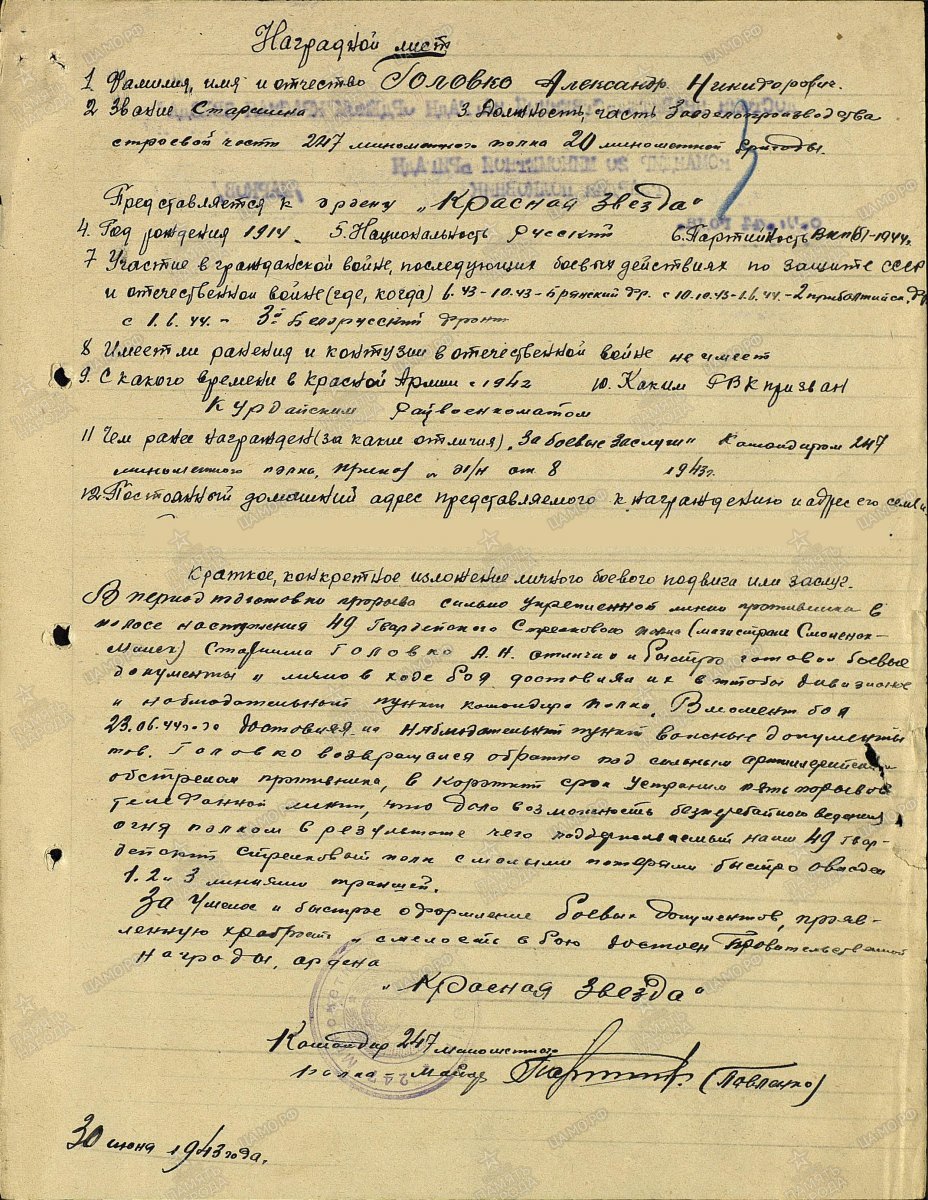 Наградной лист
1 Фамилия, имя и отчество Головко Александр Никифорович.
2 Звание Старшина 3. Должность, часть Зав делопроизводства
строевой части 247 минометного полка 20 минометной бригады.
Представляется к ордену „Красная Звезда"
4. Год рождения 1914. 5. Национальность Русский 6. Партийность ВКП(б)-1944г
7 Участие в гражданской войне, последующих боевых действиях по защите СССР
и отечественной войне (где, когда) 6.43-10.43-Брянский фр. с 10.10.43-1.6.44.-2 прибалтийск. фр
с 1.6.44.- 3й Белорусский фронт
8 Имеет ли ранения и контузии в отечественной войне не имеет
9. С какого времени в Красной Армии с 1942 10. Каким РВК призван
Курдайским райвоенкоматом
11 Чем ранее награжден (за какие отличия) „За боевые заслуги" Командиром 247
минометного полка, приказ н от 8 1943г.
12 Постоянный домашний адрес представляемого к награждению и адрес его семьи
Краткое, конкретное изложение личного боевого подвига или заслуг.
В период подготовки прорыва сильно укрепленной линии противника в
полосе наступления 49 Гвардейского Стрелкового полка (магистраль Смоленск-
Минск) Старшина Головко А.Н. отлично и быстро готовил боевые
документы и лично в ходе боя доставлял их в штабы дивизионов
и наблюдательный пункт командира полка. В момент боя
23.06.44 года доставляя на наблюдательный пункт важные документы
тов. Головко возвращаясь обратно под сильным артиллерийским
обстрелом противника, в короткий срок устранил пять порывов
телефонной линии, что дало возможность безперебайного ведения
огня полком в результате чего поддерживаемый нами 49 Гвар-
дейский стрелковый полк с малыми потерями быстро овладел
1. 2 и 3 линиями траншей.
За умелое и быстрое оформление боевых документов, прояв-
ленную храбрость и смелость в бою достоин Правительственной
награды, ордена
„Красная Звезда"
Командир 247 минометного
полка - майор (Павленко)
30 июня 1943 года.